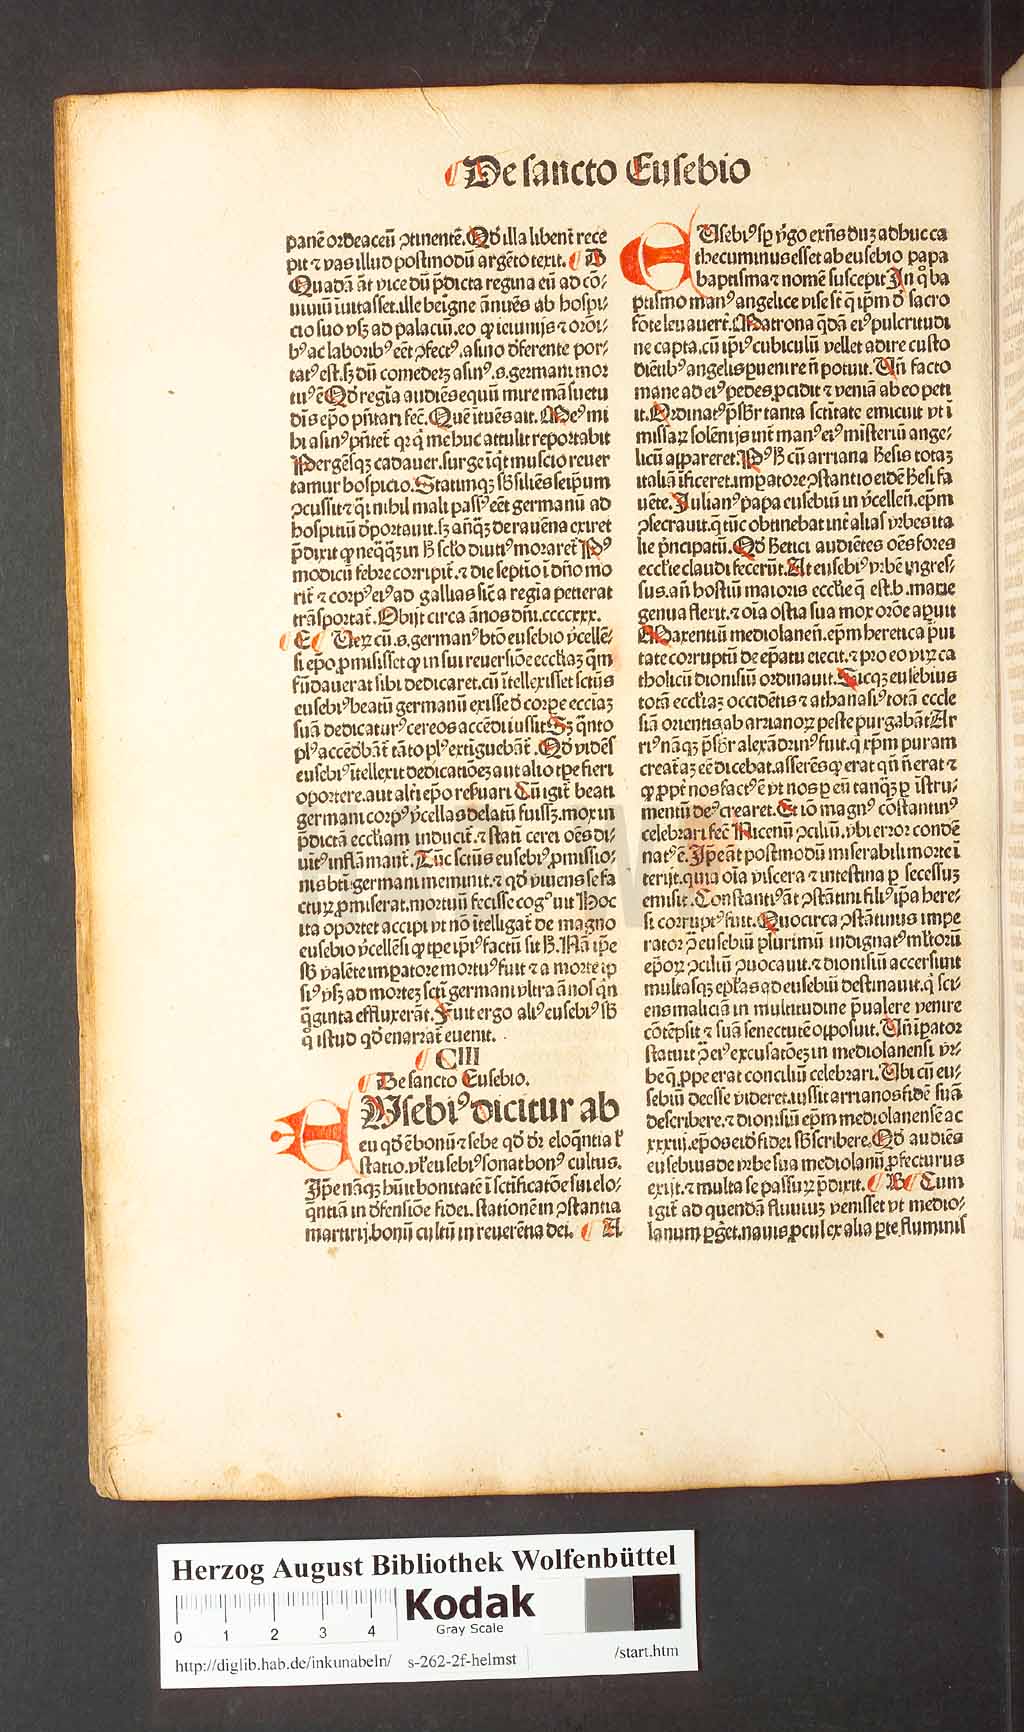 De sancto Eusebio
panē ordeaceū ꝯtinentē. Qd́ illa libent̄ rece
pit ⁊ vas illud postmodū argēto texit. B
Quadā āt vice dū p̄dicta regina eū ad cō⸗
uiuiū īuitasset. ille beigne ānuēs ab hospi⸗
cio suo vsꝫ ad palaciū. eo ꝙ ieiunijs ⁊ orōi⸗
bꝰ ac laboribꝰ eēt ꝯfectꝰ. asino d̓ferente por⸗
tatꝰ est. sꝫ dū comederꝫ asinꝰ .s. germani mor
tuꝰ ē Qd́ regīa audiēs equū mire māsuetu
dīs ep̄o p̄ntari fec̄. Quē ītuēs ait. Meꝰ mi
bi asinꝰ p̄ntet̄ qꝛ q̇ me huc attulit reportabit
Pergēsqꝫ cadauer. surge īq̇t muscio reuer
tamur hospicio. Statimqꝫ sb̓siliēs seipsum
ꝯcussit ⁊ q̇si nihil mali passꝰ eēt germanū ad
hospitiū d̓portauit. sꝫ añqꝫ de rauēna exiret
p̄dixit ꝙ neq̄qꝫ in ħ sclo diutiꝰ moraret̄ Pꝰ
modicū febre corripit̄. ⁊ die septīo ī dn̄o mo
rit̄ ⁊ corpꝰ eiꝰ ad gallias sic̄ a regīa petierat
trāsportat̄. Obijt circa ānos dn̄i. ccccxxx.
C Verꝫ cū .s. germanꝰ btō eusebio v̓celle⸗
si ep̄o ꝓmisisset ꝙ in sui reuersiōe eccl̓iaꝫ q̄m
fūdauerat sibi dedicaret. cū ītellexisset sctūs
eusebiꝰ beatū germanū exisse d̓ corpe eccīaꝫ
suā dedicatur̄ cereos accēdi iussit Sꝫ q̄nto
plꝰ accēdbāt̄ tāto plꝰ extiguebāt̄. Qd́ vidēs
eusebiꝰ ītellexit dedicatiōeꝫ aut alio tꝑe fieri
oportere. aut alt̄i ep̄o resuari Cū igit̄ beati
germani corpꝰ v̓cellas delatū fuissꝫ. mox in
p̄dictā eccl̓iam inducit̄. ⁊ statī cerei oēs di⸗
uīt̄ꝰ inflāmant̄. Tūc sctūs eusebiꝰ ꝓmissio⸗
nis bt̄i germani meminit. ⁊ qd́ viuens se fa
cturꝫ ꝓmiserat. mortuū fecisse cogꝰ uit Hoc
ita oportet accipi vt nō ītelligat̄ de magno
eusebio v̓cellēsi ꝙ tꝑe ipiꝰ factū sit ħ. Nā ip̄e
sb̓ valēte imꝑatore mortuꝰ fuit ⁊ a morte ip
siꝰ vsꝫ ad morteꝫ sctī germani vltra ānos qn̄
q̄ginta effluxerāt̄. Fuit ergo aliꝰ eusebiꝰ sb̓
q̊ istud qd́ enarrat̄ euenit.
CIII
De sancto Eusebio.
EUsebiꝰ dicitur ab
eu qd́ ē bonū ⁊ sebe qd́ dr̄ eloq̄ntia ł
statio. vł eusebiꝰ sonat bonꝰ cultus.
Ip̄e nāqꝫ hūit bonitatē ī sctificatōe sui elo⸗
q̄ntiā in d̓fensiōe fidei. stationē in ꝯstantia
martirij. bonū cultū in reuerēna dei. A
EUsebiꝰ sp̄ v̓go exn̄s duꝫ adhuc ca
thecuminus esset ab eusebio papa
baptisma ⁊ nomē suscepit In q̊ ba
ptismo manꝰ angelice vise st̄ q̄ ip̄m d̓ sacro
fōte leuauert̄. Matrona q̄dā eiꝰ pulcritudi
ne capta. cū ip̄iꝰ cubiculū vellet adire custo
diētibꝰ angelis ꝑuenire n̄ potuit. Vn̄ facto
mane ad eiꝰ pedes ꝓcidit ⁊ veniā ab eo peti
it. Ordinatꝰ p̄sbr̄ tanta sctītate emicuit vt ī
missaꝝ solēnijs int̄ manꝰ eiꝰ mīsteriū ange⸗
licū appareret. Pꝰ ħ cū arriana ħesis totaꝫ
italiā īficeret. imꝑatore ꝯstantio eidē ħesi fa
uēte. Iulianꝰ papa eusebiū in v̓cellen̄. ep̄m
ꝯsecrauit. q̄ tūc obtinebat int̄ alias vrbes ita
lie p̄ncipatū. Qd́ ħetici audiētes oēs fores
eccl̓ie claudi fecerūt. At eusebiꝰ vrbē ingres⸗
sus. an̄ hostiū maioris eccl̓ie q̄ est. b. marie
genua flexit. ⁊ oīa ostia sua mox orōe aꝑuit
Maxentiū mediolanen̄. ep̄m heretica p̄ui
tate corruptū de ep̄atu eiecit. ⁊ pro eo viꝝ ca
tholicū dionisiū ordinauit. Sicqꝫ eusebius
totā eccl̓iaꝫ occidētis ⁊ athanasiꝰ totā eccle
siā orientis ab arrianoꝝ peste purgabāt Ar
riꝰ nāqꝫ p̄sbr̄ alexādrinꝰ fuit. q̇ xp̄m puram
creat̄aꝫ eē dicebat. asserēs ꝙ erat qn̄ n̄ erat ⁊
ꝙ ꝓpt̄ nos factꝰ ē vt nos ꝑ eū tanqꝫ ꝑ īstru⸗
mentū deꝰ crearet. Et iō magnꝰ cōstantinꝰ
celebrari fec̄ Nicenū ꝯciliū. vbi error condē
natꝰ ē. Ip̄e āt postmodū miserabili morte ī
terijt. quia oīa viscera ⁊ intestina ꝑ secessuꝫ
emisit. Constantiꝰ āt ꝯstātini filiꝰ ip̄a here⸗
si corruptꝰ fuit. Quocirca ꝯstātinus impe
rator ꝯ eusebiū plurimū indignatꝰ mltōrū
ep̄oꝝ ꝯciliū ꝯuocauit. ⁊ dionisiū accersiuit
multasqꝫ epl̄as qd eusebiū destinauit. q̇ sci⸗
ens maliciā in multitudine p̄ualere venire
cōtēpsit ⁊ suā senectutē opposuit. Vn̄ īꝑator
statuit ꝯ eiꝰ excusatōeꝫ in mediolanensi vr⸗
be q̄ ꝓpe erat concilium celebrari. Vbi cū eu⸗
sebiū deesse videret. iussit arrianos fidē suā
describere. ⁊ dionisiū ep̄m mediolanensē ac
xxxiij. ep̄os eid̓ fidei sb̓scribere. Qd́ audiēs
eusebius de vrbe sua mediolanū ꝓfecturus
exijt. ⁊ multa se passuꝝ p̄dixit. B Cum
igit̄ ad quendā fluuiuꝫ venisset vt medio⸗
lanum ꝑget. nauis ꝓcul ex alia ꝑte fluminis
Herzog August Bibliothek Wolfenbüttel
0 1 2 3 4
Kodak
Gray Scale
http://diglib.hab.de/inkunabeln/ s-262-2f-helmst /start.htm